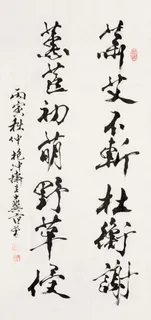 蕭艾不斬杜衡謝
蕙茝初萌野草侵
丙寅秋仲